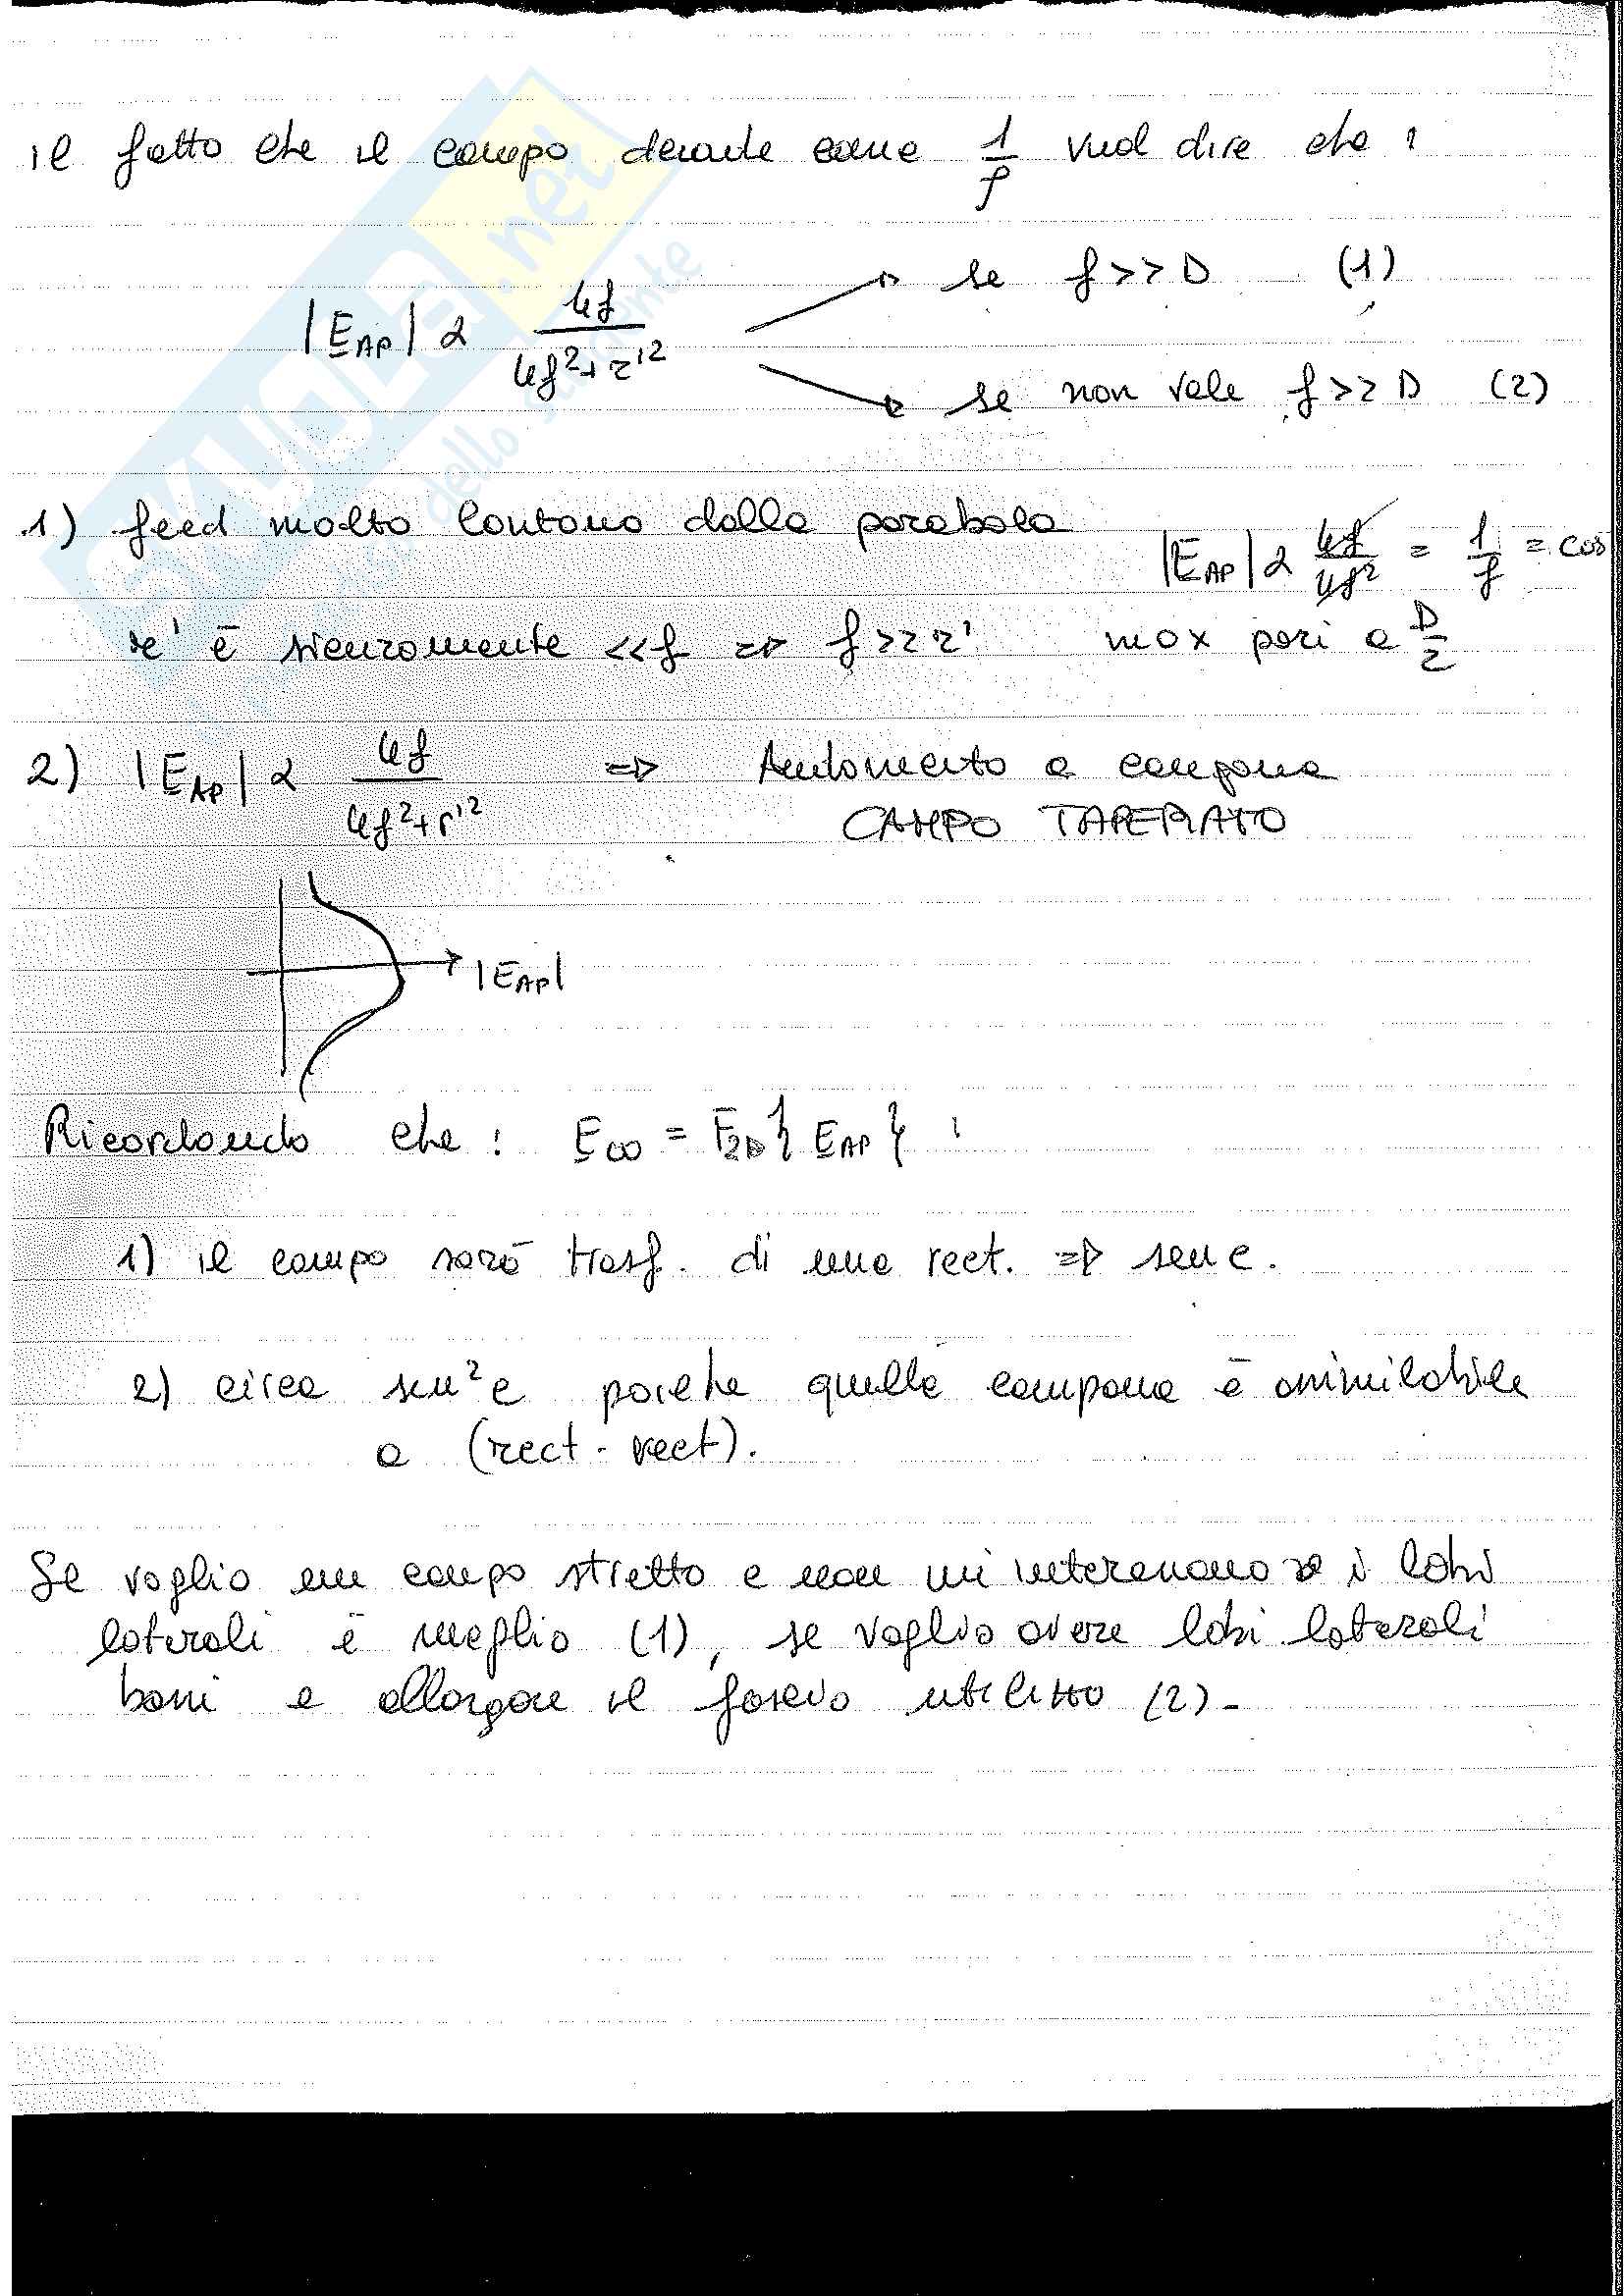 il fatto che il campo decade come 1/ρ vuol dire che :
|E_AP| α 4f / (4f² + r'²)
se f >> D (1)
se non vale f >> D (2)
1) feed molto lontano dalla parabola |E_AP| α 4f / 4f² = 1/f = cos
r' è sicuramente << f => f >> r' max pari a D/2
2) |E_AP| α 4f / (4f² + r'²) => Andamento a campana
CAMPO TAPERATO
|E_AP|
Ricordando che : E_∞ = F_2D { E_AP } :
1) il campo sarà trasf. di una rect. => senc.
2) circa sen²c poiché quella campana è assimilabile
a (rect · rect).
Se voglio un campo stretto e non mi interessano i lobi
laterali è meglio (1), se voglio avere lobi laterali
bassi e allargare il fascio utilizzo (2).
SKUOLA.net
dello studente